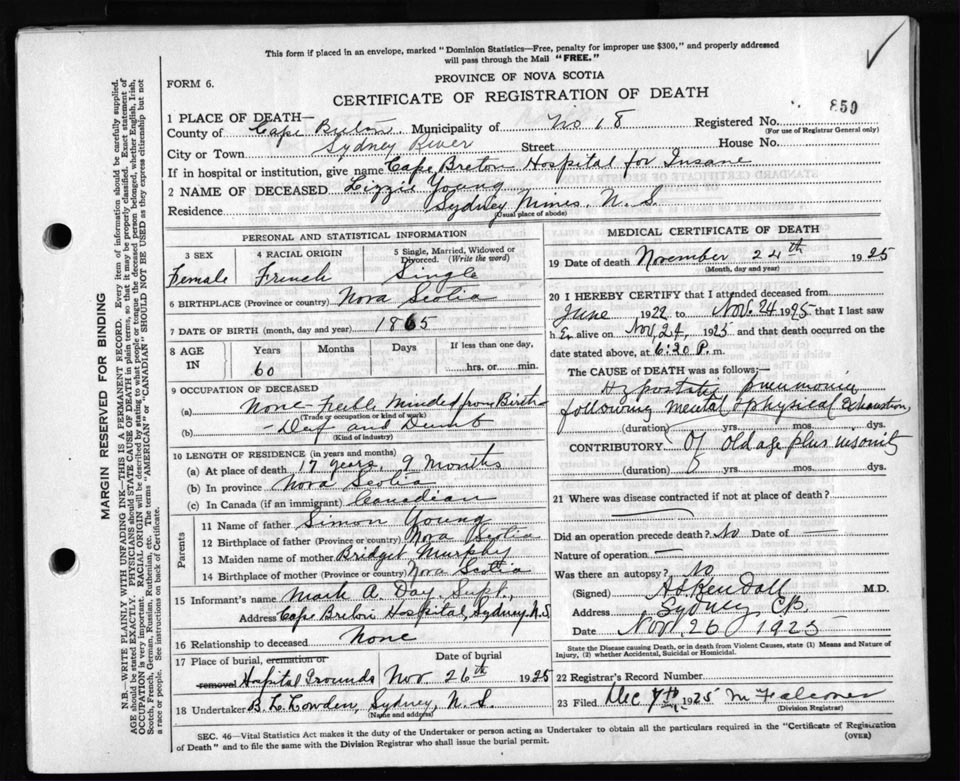 This form if placed in an envelope, marked "Dominion Statistics—Free, penalty for improper use $300," and properly addressed
will pass through the Mail "FREE."
PROVINCE OF NOVA SCOTIA
FORM 6.
CERTIFICATE OF REGISTRATION OF DEATH
859
1 PLACE OF DEATH—
County of Cape Breton Municipality of No 18 Registered No.
(For use of Registrar General only)
City or Town Sydney River Street House No.
If in hospital or institution, give name Cape Breton Hospital for Insane
2 NAME OF DECEASED Lizzie Young
Residence Sydney Mines, N. S.
(Usual place of abode)
PERSONAL AND STATISTICAL INFORMATION
3 SEX 4 RACIAL ORIGIN 5 Single, Married, Widowed or
Divorced. (Write the word)
Female French Single
6 BIRTHPLACE (Province or country) Nova Scotia
7 DATE OF BIRTH (month, day and year) 1865
8 AGE IN Years Months Days If less than one day,
60 hrs. or min.
9 OCCUPATION OF DECEASED
(a) None - Feeble Minded from Birth
(Trade or occupation or kind of work)
(b) - Deaf and Dumb
(Kind of industry)
10 LENGTH OF RESIDENCE (in years and months)
(a) At place of death 17 years, 9 months
(b) In province Nova Scotia
(c) In Canada (if an immigrant) Canadian
Parents
11 Name of father Simon Young
12 Birthplace of father (Province or country) Nova Scotia
13 Maiden name of mother Bridget Murphy
14 Birthplace of mother (Province or country) Nova Scotia
15 Informant's name Mark A. Day. Supt.,
Address Cape Breton Hospital, Sydney N.S
16 Relationship to deceased None
17 Place of burial, cremation or Date of burial
removal Hospital Grounds Nov 26th 1925
18 Undertaker B. L. Lowden, Sydney, N. S.
(Name and address)
MEDICAL CERTIFICATE OF DEATH
19 Date of death November 24th 1925
(Month, day and year)
20 I HEREBY CERTIFY that I attended deceased from
June 1922 to Nov. 24 1925 that I last saw
h er alive on Nov. 24 1925 and that death occurred on the
date stated above, at 6:20 P. m.
The CAUSE of DEATH was as follows:—
Hypostatic pneumonia
following mental & physical exhaustion,
(duration) yrs. mos. dys.
CONTRIBUTORY Of old age plus insanity
(duration) yrs. mos. dys.
21 Where was disease contracted if not at place of death?
Did an operation precede death? No Date of —
Nature of operation —
Was there an autopsy? No
(Signed) Kendall M.D.
Address Sydney CB
Date Nov. 26 1925
State the Disease causing Death, or in death from Violent Causes, state (1) Means and Nature of
Injury, (2) whether Accidental, Suicidal or Homicidal.
22 Registrar's Record Number
23 Filed Dec 7th 1925 M Falconer
(Division Registrar)
SEC. 46—Vital Statistics Act makes it the duty of the Undertaker or person acting as Undertaker to obtain all the particulars required in the "Certificate of Registration
of Death" and to file the same with the Division Registrar who shall issue the burial permit.
(OVER)
MARGIN RESERVED FOR BINDING
N.B.—WRITE PLAINLY WITH UNFADING INK—THIS IS A PERMANENT RECORD. Every item of information should be carefully supplied.
AGE should be stated EXACTLY. PHYSICIANS should STATE CAUSE OF DEATH in plain terms, so that it may be properly classified. Exact statement of
OCCUPATION is very important. RACIAL ORIGIN will be described by stating to what people or tongue the deceased person belonged, whether English, Irish,
Scotch, French, German, Russian, Ruthenian, etc. The terms "AMERICAN" or "CANADIAN" SHOULD NOT BE USED as they express citizenship but not
a race or people. See instructions on back of Certificate.